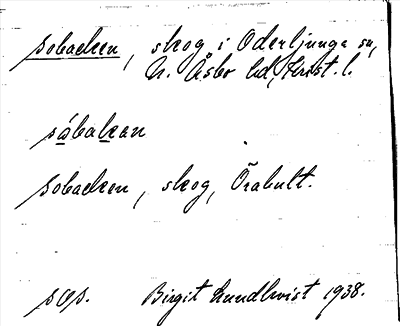 sobacken, skog i Oderljunga sn,
N. Åsbo hd, Krist. l.
såbakan
sobacken, skog, Örahult.
sas. Birgit Lundkvist 1938.